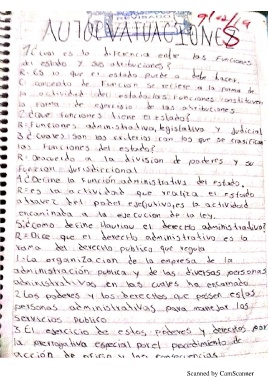 AUTOEVALUACIONES
1 ¿Cual es la diferencia entre las funciones
del estado y sus atribuciones?
R- Es lo que el estado puede o debe hacer,
el concepto de Funcion se refiere a la forma de
la actividad del estado. Las Funciones constituyen
la forma de ejercicio de las atribuciones.
2 ¿Que funciones tiene el estado?
R= Funciones administrativa, legislativa y Judicial
3 ¿Cuales son los criterios con los que se clasifican
las funciones del estado?
R= Deacuerdo a la division de poderes y su
Funcion Jurisdiccional
4 Define la función administrativa del estado
R= es la actividad que realiza el estado
atraves del poder esejutivo, es la actividad
encaminada a la ejecucion de la ley.
5 ¿Como define Hauriou el derecho administrativo?
R= Dice que el derecho administrativo es la
rama del derecho publico que regula
1.- La organizacion de la empresa de la
administración publica y de las diversas personas
administrativas en las cuales ha encarnado
2 Los poderes y los derechos que poseen estas
personas administrativas para manejar los
servicios publico
3 El ejercicio de estos poderes y derechos por
la prerrogativa especial por el procedimiento de
acción de oficio y las consecuencias
Scanned by CamScanner